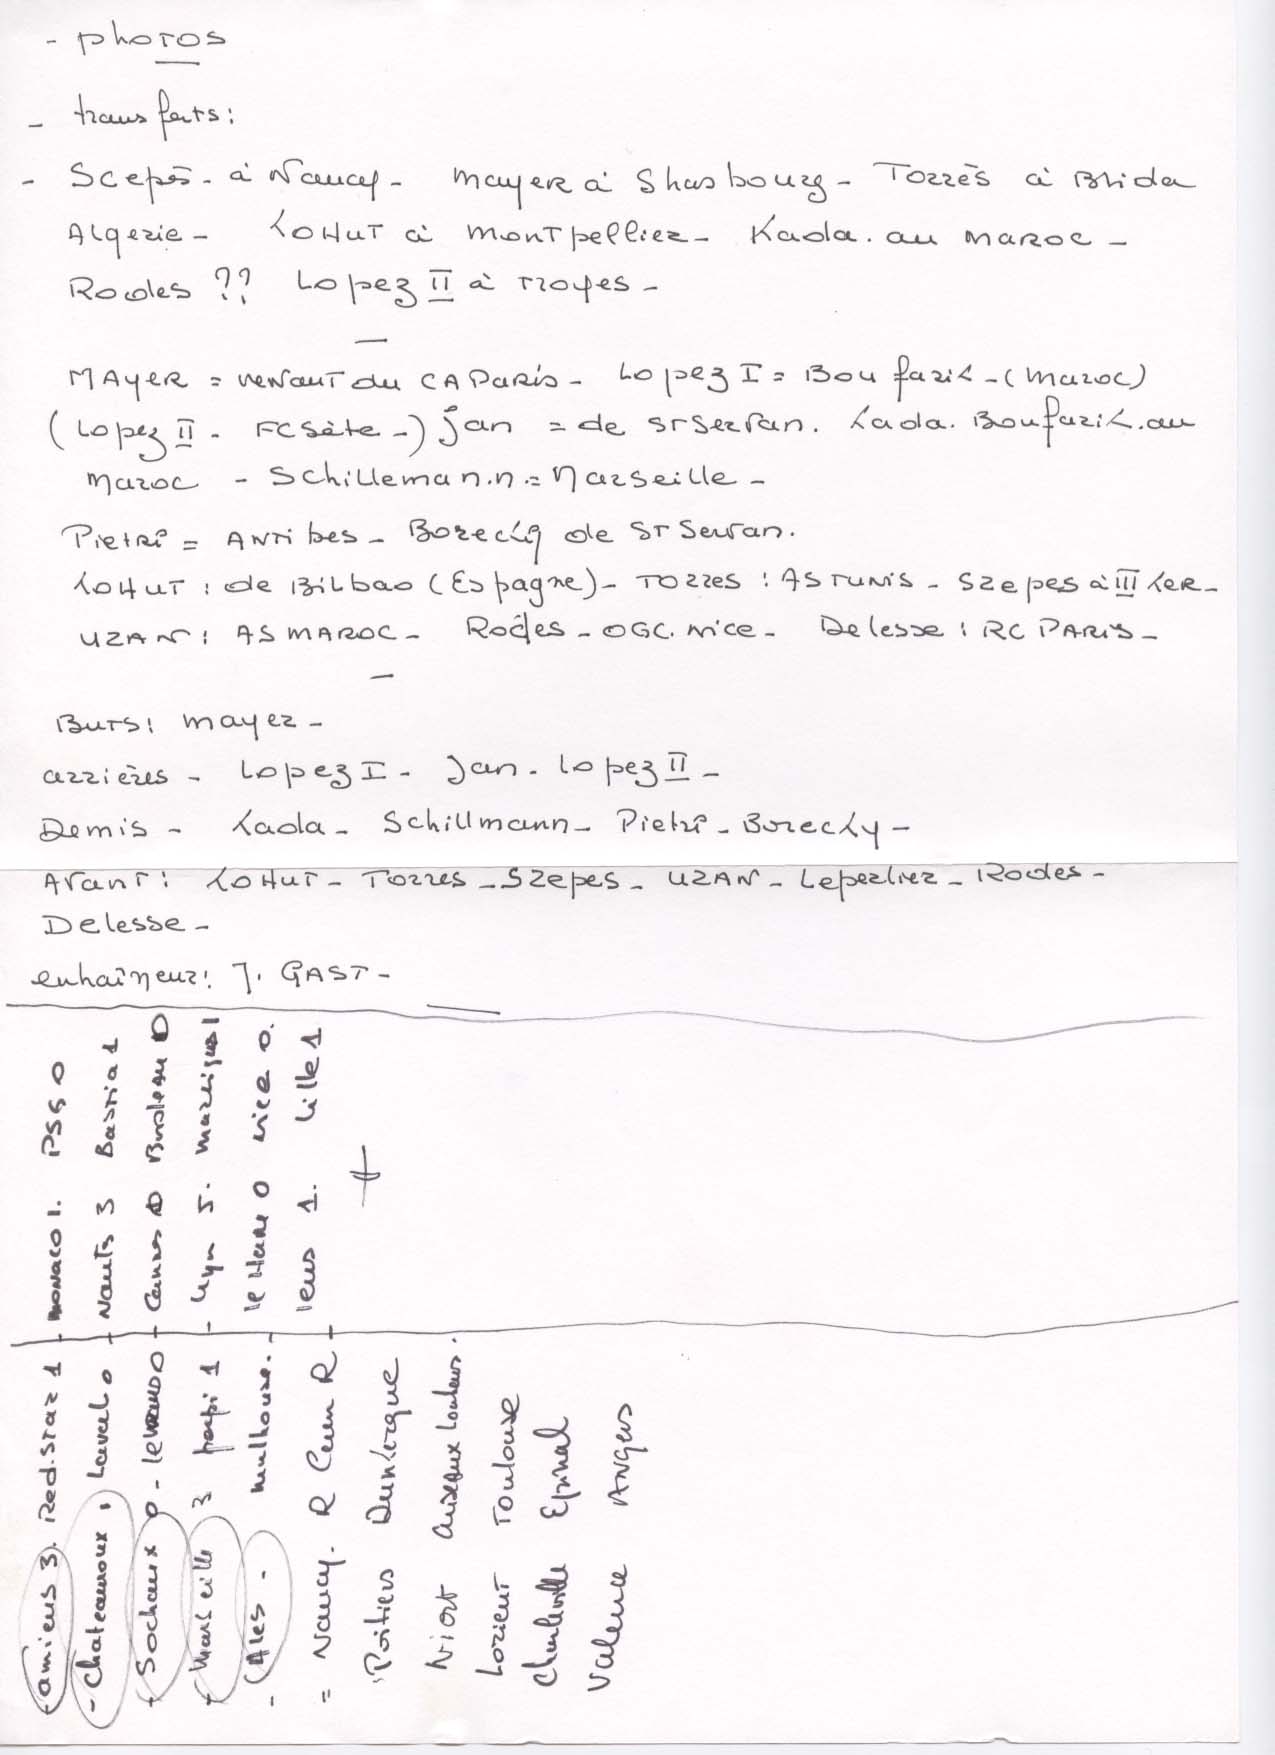 - photos
- transferts:
- Scepes - à Nancy - Mayer à Strasbourg - Torrès à Blida
Algerie - Kohut à Montpellier - Kada. au Maroc -
Rodes ?? Lopez II à Troyes -
MAYER = venant du CA Paris - Lopez I = Boufarik - (Maroc)
(Lopez II - FC Sète -) Jan = de St Servan. Kada. Boufarik. au
Maroc - Schillemann = Marseille -
Pietri = Antibes - Borecky de St Servan.
Kohut : de Bilbao (Espagne) - Torres : AS TUNIS - Szepes à III Ker -
UZAN : AS MAROC - Rodes - OGC. Nice - Delesse : RC PARIS -
Buts : Mayer -
arrières - Lopez I - Jan - Lopez II -
Demis - Kada - Schillmann - Pietri - Borecky -
Avant : Kohut - Torres - Szepes - UZAN - Leperlier - Rodes -
Delesse -
entraîneur : J. GAST -
- Monaco 1. PSG 0
- Nants 3 Bastia 1
- Cannes 0 Bordeau 0
- Lyn 5. Martigues 1
- le Havre 0 Nice 0.
- lens 1. Lille 1
- amiens 3. Red. Star 1
- Chateauroux 1 Laval 0
- Sochaux 0 - lemans 0
- Marseille 3 1
- Ales - mulhouse.
= Nancy. R Caen R
Poitiers Dunkerque
Niort
Lorient Toulouse
Charleville Epinal
Valence Angers